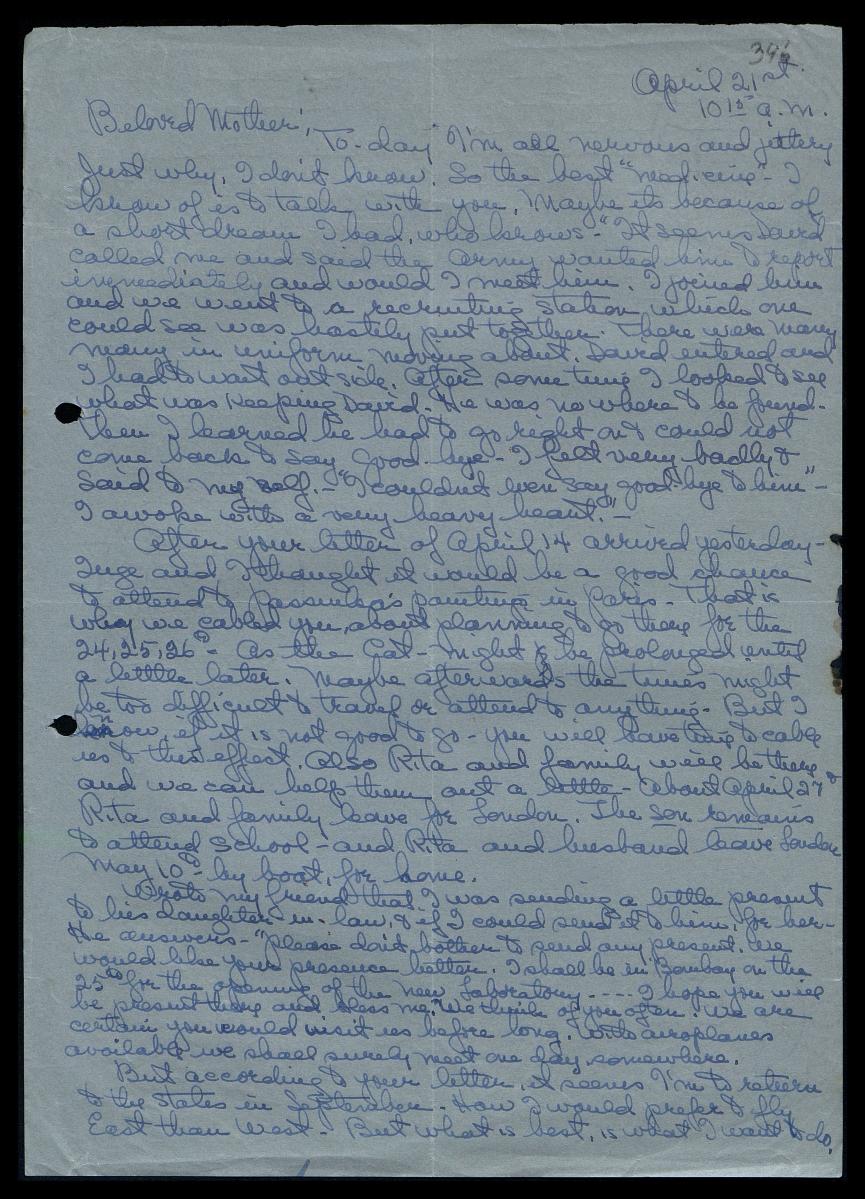 346
April 21st
10 15 a.m.
Beloved Mother,
To-day I'm all nervous and jittery
Just why, I don't know. So the best "medicine" - I
know of is to talk with you. Maybe its because of
a short dream I had, who knows - "It seems David
called me and said the Army wanted him to report
immediately and would I meet him. I joined him
and we went to a recruiting station, which one
could see was hastely put together. There were many
many in uniform moving about. David entered and
I had to wait outside. After some time I looked to see
what was keeping David - He was no where to be found -
Then I learned he had to go right on & could not
come back to say good-bye - I felt very badly &
said to my self. - "I couldn't even say good-bye to him" -
I awoke with a very heavy heart." -
After your letter of April 14 arrived yesterday -
Inge and I thought it would be a good chance
to attend to paintings in Paris - That is
why we cabled you, about planning to go there for the
24, 25, 26th - As the Cat - might be prolonged until
a little later. Maybe afterwards the times might
be too difficult to travel or attend to anything - But I
know, if it is not good to go - you will have time to cable
us to this effect. Also Rita and family will be there &
and we can help them out a little - About April 27th
Rita and family leave for London. The son remains
to attend School - and Rita and husband leave London
May 10th - by boat, for home.
Wrote my friend that I was sending a little present
to his daughter in-law, & if I could send it to him, for her -
He answers - "please don't bother to send any present. We
would like your presence better. I shall be in Bombay on the
25th for the opening of the new Laboratory ---- I hope you will
be present there and bless me." We think of you often. We are
certain you would visit us before long. With aeroplanes
available we shall surely meet one day somewhere.
But according to your letter, it seems I'm to return
to the States in September - How I would prefer to fly
East than West - But what is best, is what I want to do.